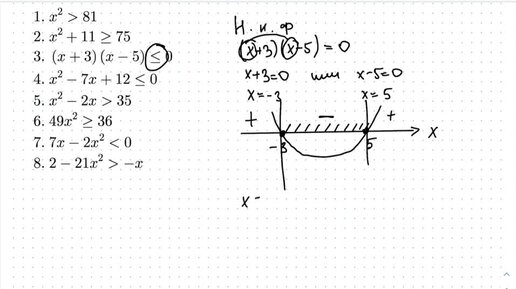 1. x² > 81
2. x² + 11 ≥ 75
3. (x + 3)(x − 5) ≤ 0
4. x² − 7x + 12 ≤ 0
5. x² − 2x > 35
6. 49x² ≥ 36
7. 7x − 2x² < 0
8. 2 − 21x² > −x
Н. и. ф
(x+3)(x-5)=0
x+3=0 или x-5=0
x=-3 x=5
+ − +
-3 5 x
x -